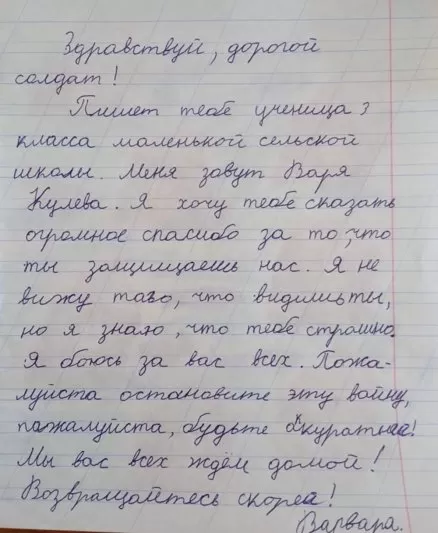 Здравствуй, дорогой
солдат!
Пишет тебе ученица 3
класса маленькой сельской
школы. Меня зовут Варя
Кулева. Я хочу тебе сказать
огромное спасибо за то, что
ты защищаешь нас. Я не
вижу того, что видишь ты,
но я знаю, что тебе страшно.
Я боюсь за вас всех. Пожа-
луйста остановите эту войну,
пажалуйста, будьте аккуратнее!
Мы вас всех ждём домой!
Возвращайтесь скорее!
Варвара.